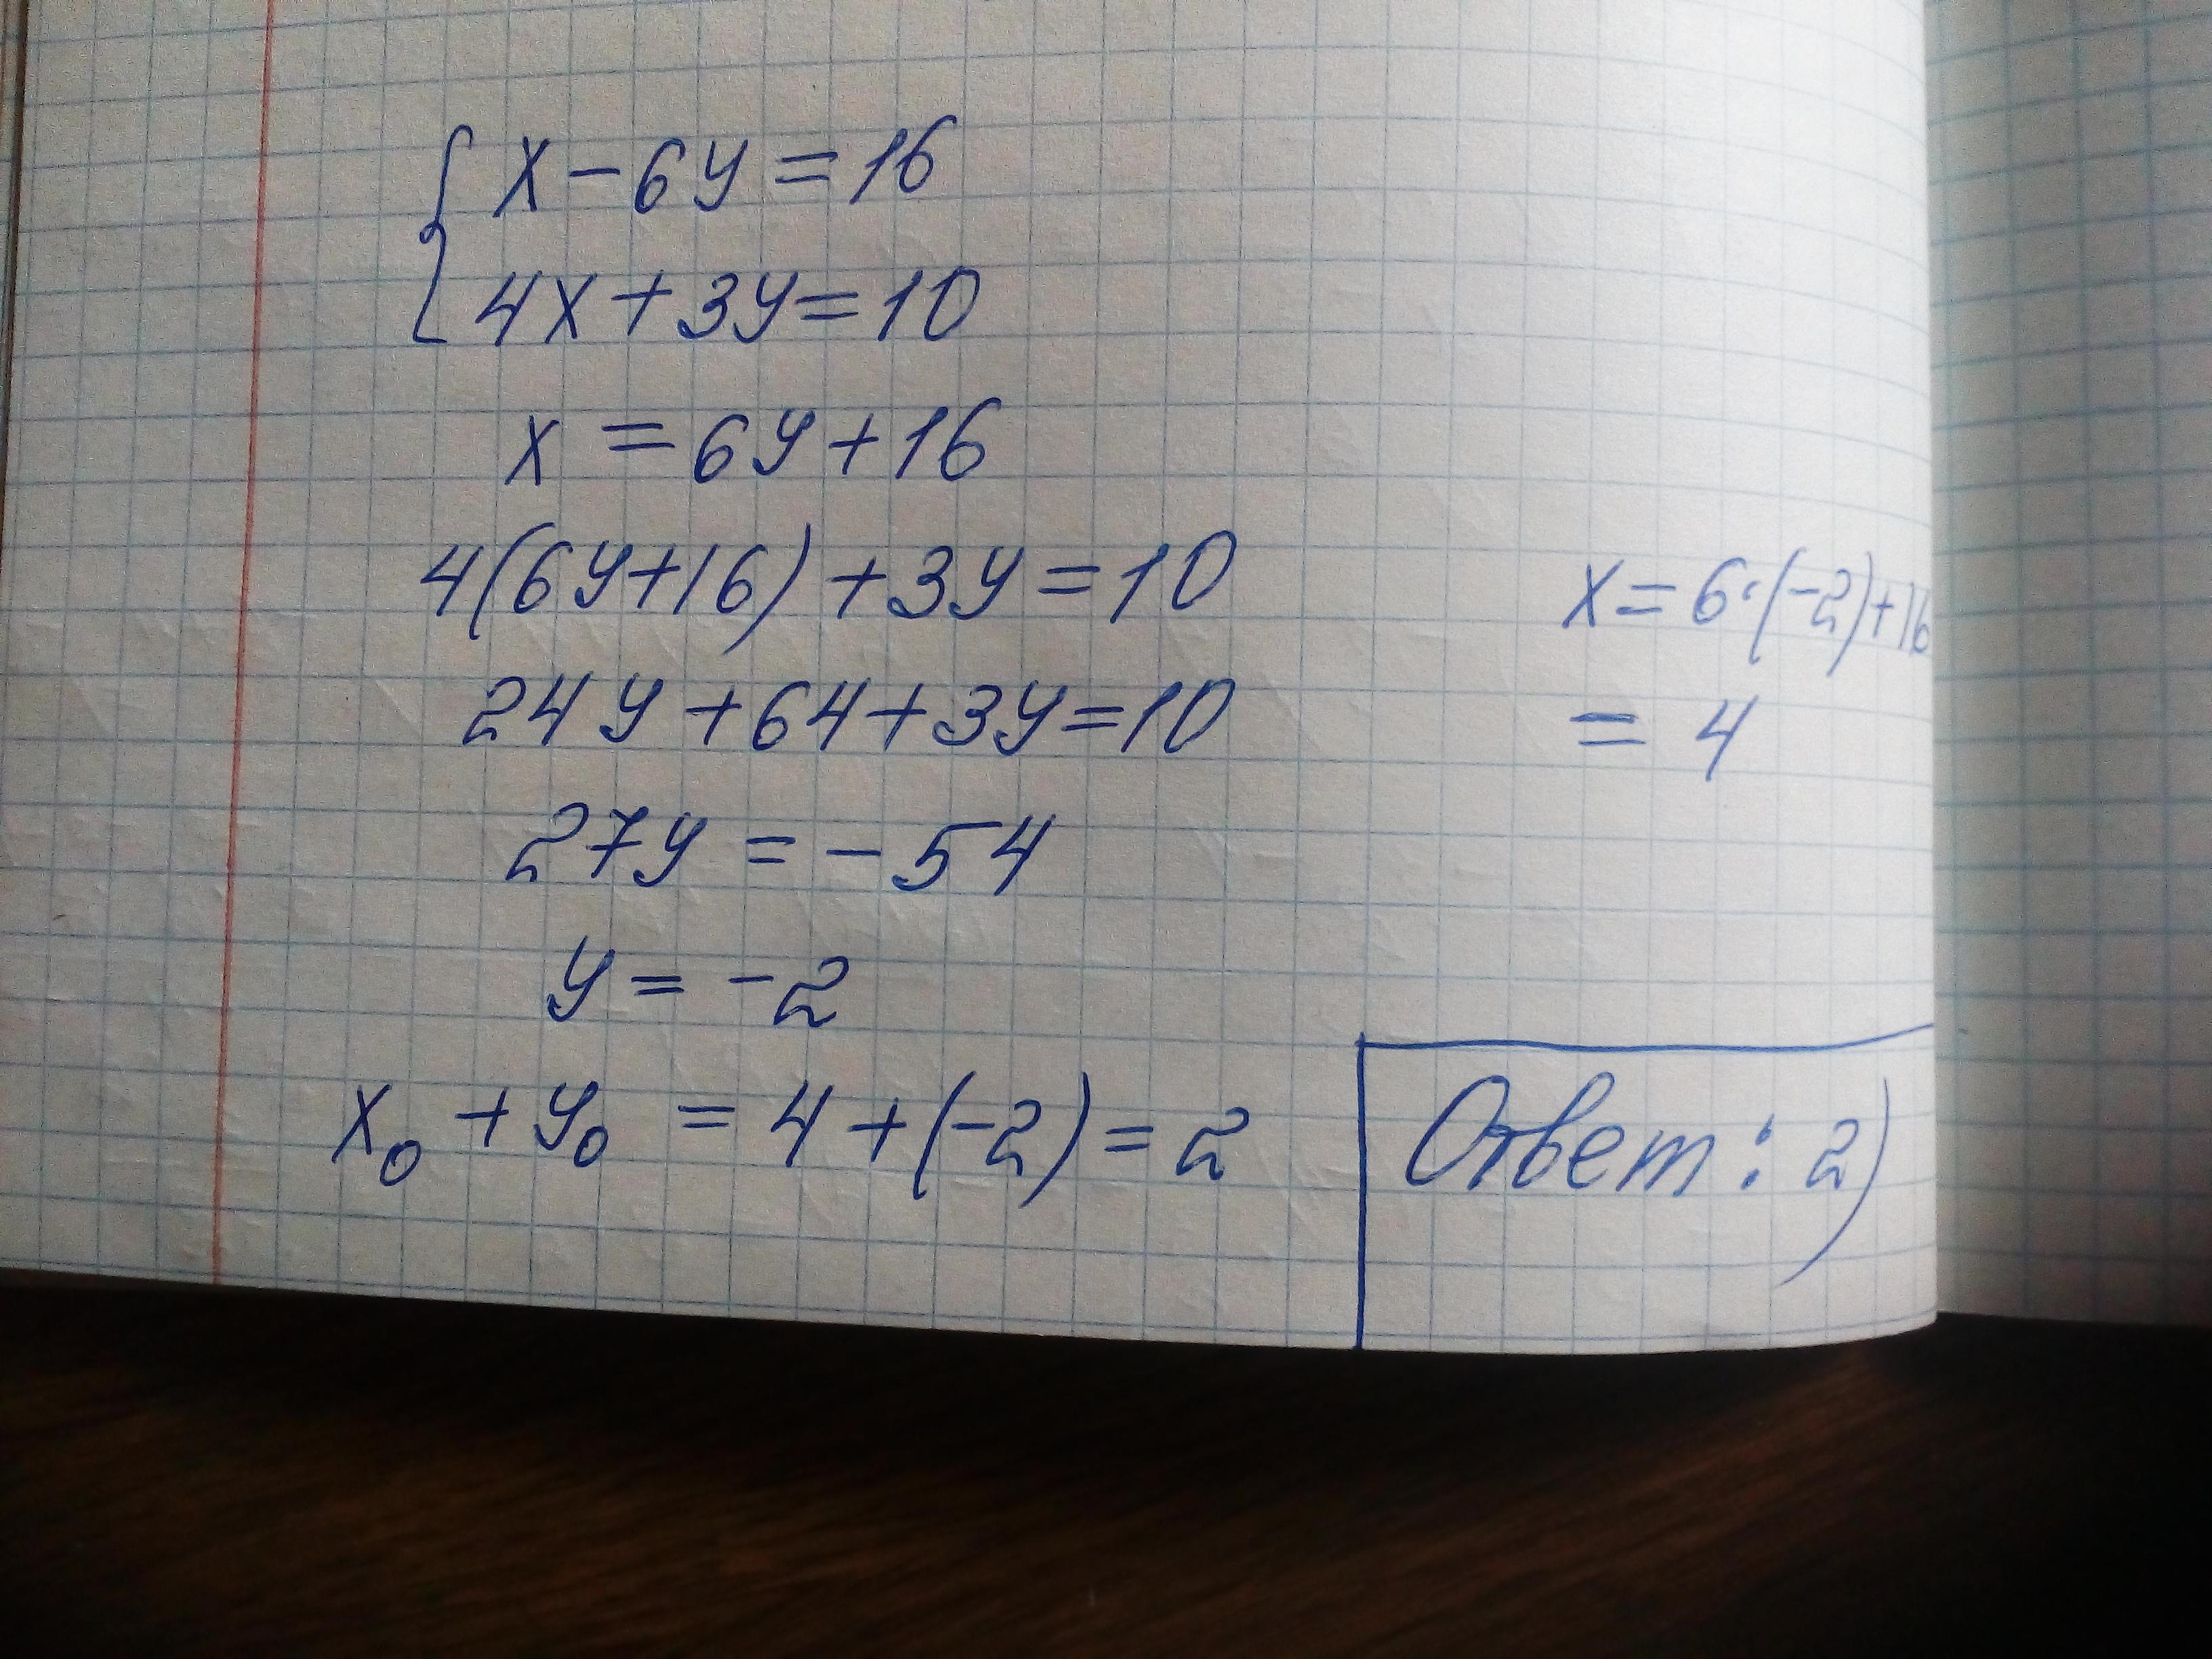 x - 6y = 16
4x + 3y = 10
x = 6y + 16
4(6y+16) + 3y = 10
24y + 64 + 3y = 10
27y = -54
y = -2
x₀ + y₀ = 4 + (-2) = 2
x = 6·(-2)+16
= 4
Ответ: 2)